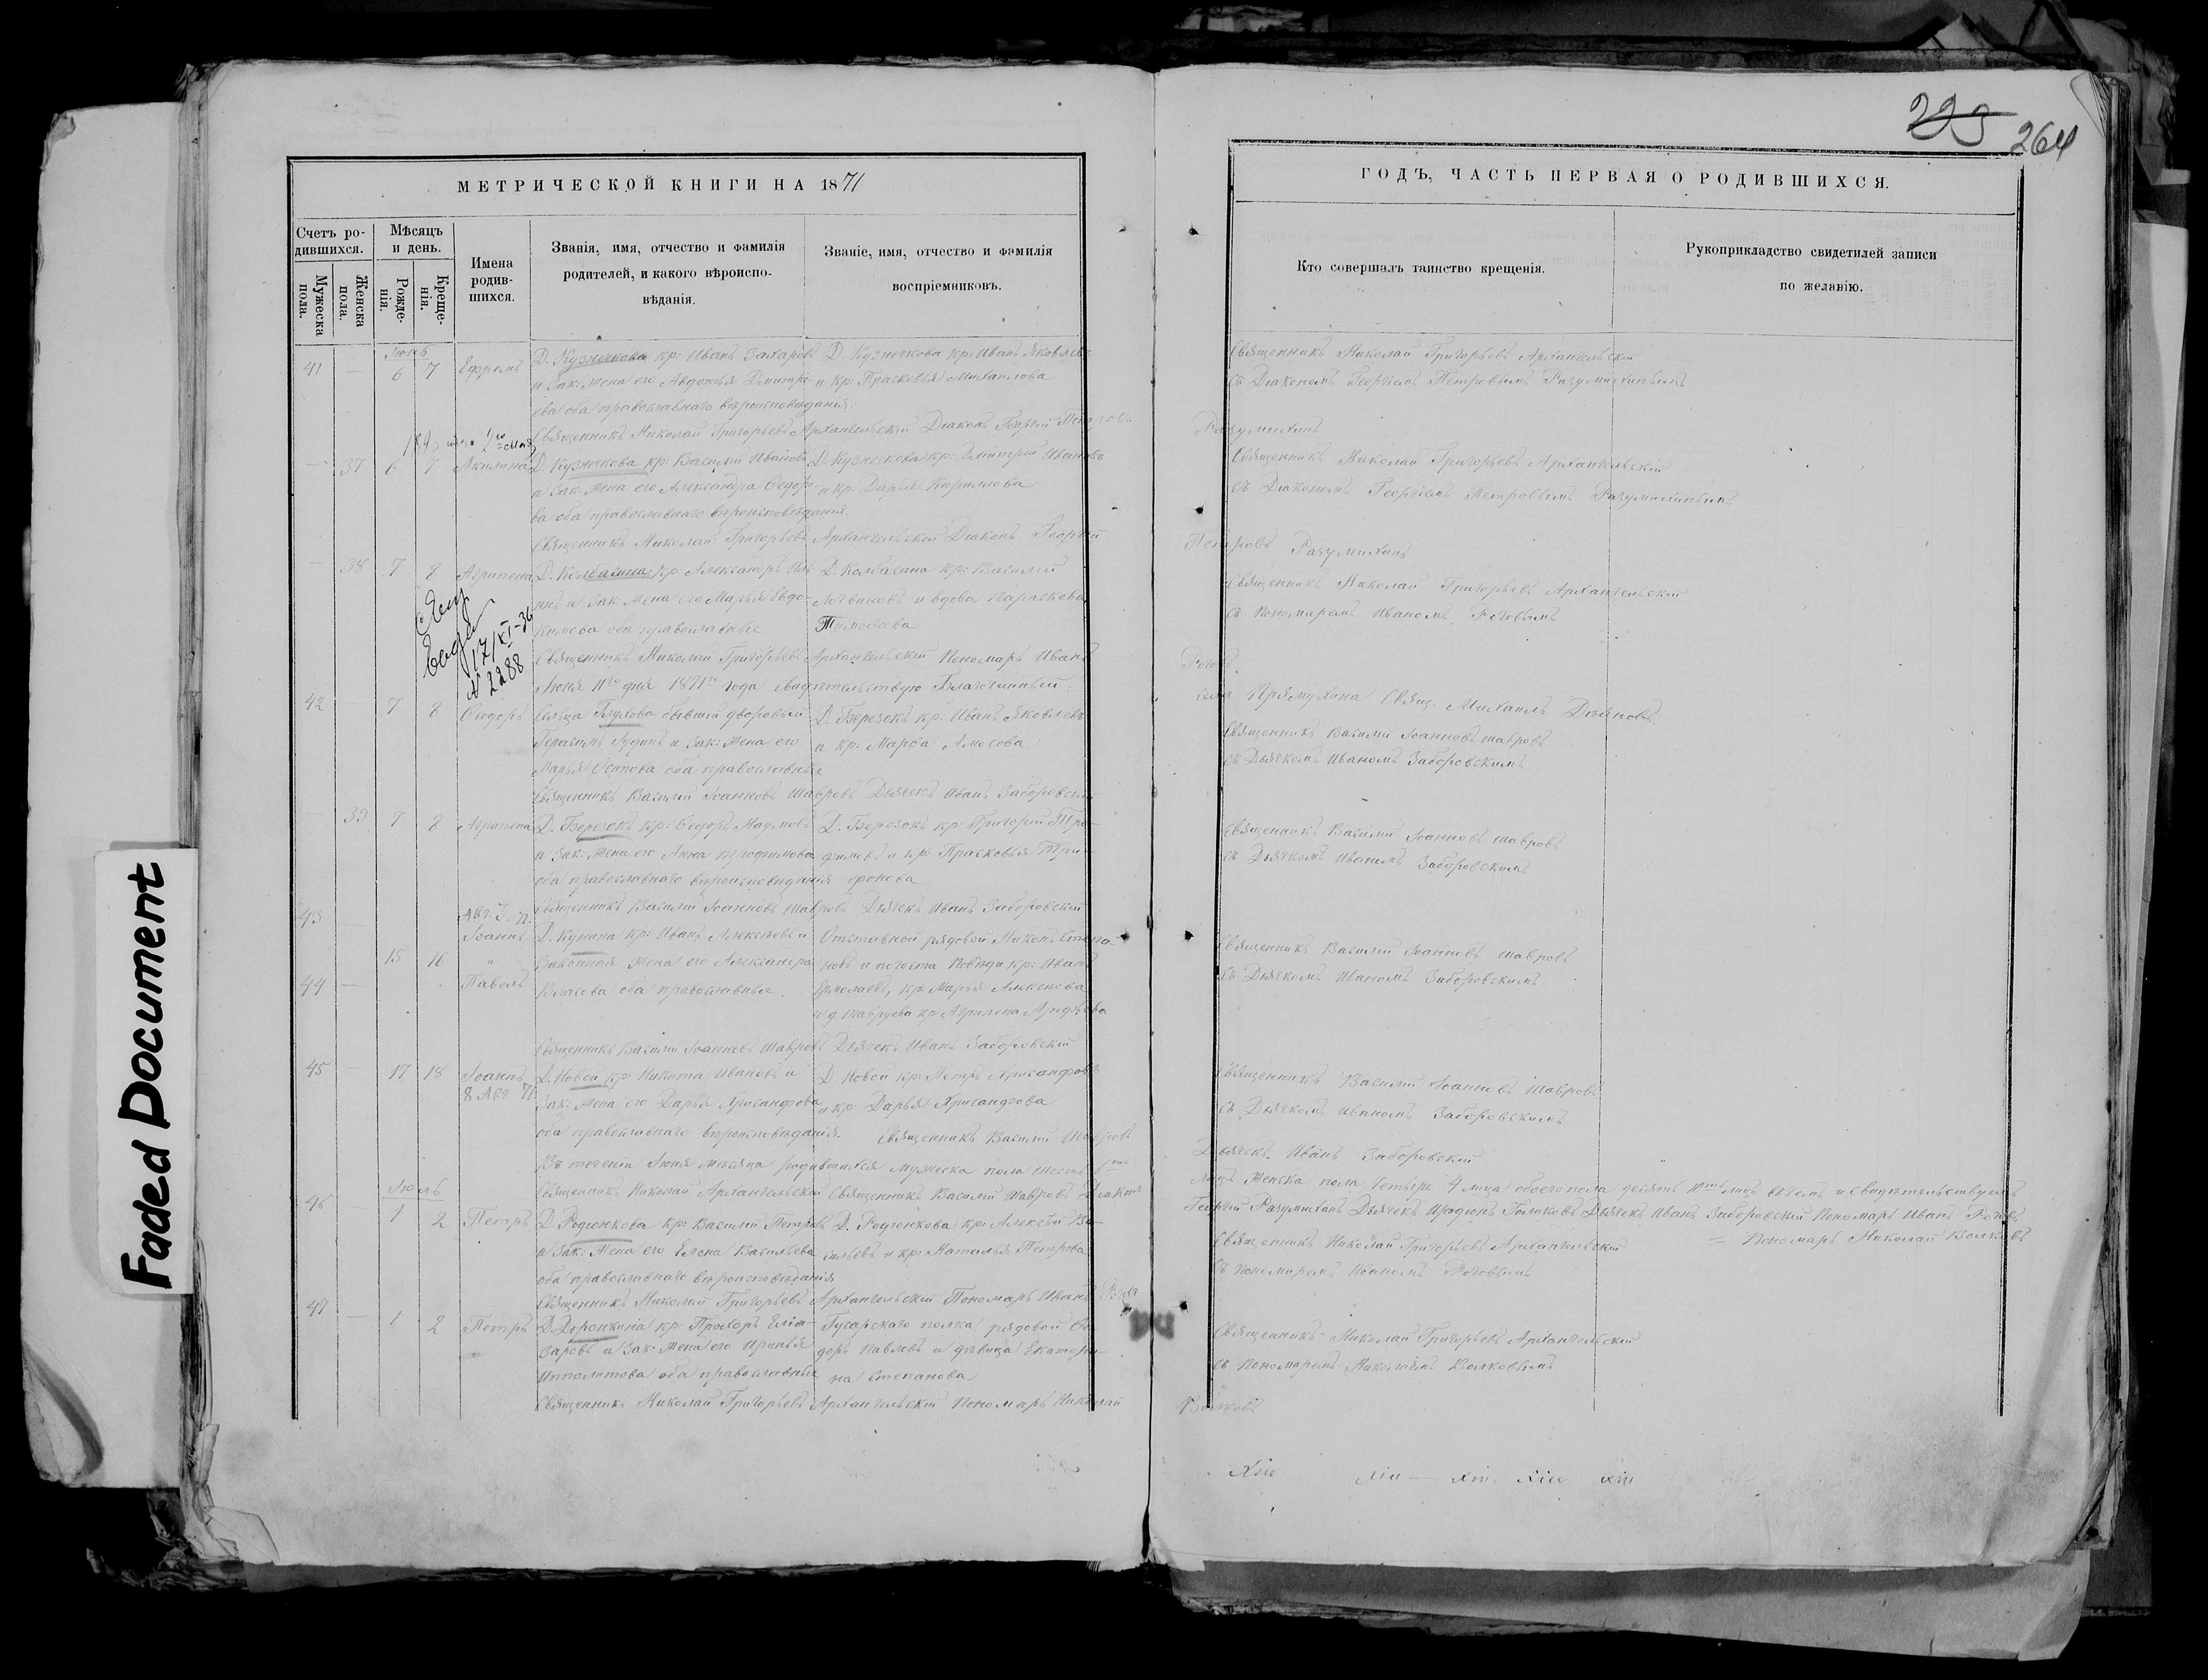 МЕТРИЧЕСКОЙ КНИГИ НА 1871
Счетъ ро-
дившихся.
Мужеска
пола.
Женска
пола.
Мѣсяцъ
и день.
Рожде-
нія.
Креще-
нія.
Имена
родив-
шихся.
Званія, имя, отчество и фамилія
родителей, и какого вѣроиспо-
вѣданія.
Званіе, имя, отчество и фамилія
воспріемниковъ.
Іюнь
41 — 6 7 Ефремъ Д. Кузнечкова кр: Иванъ Захаровъ Д. Кузнечкова кр: Иванъ Яковлевъ
и зак: жена его Авдотья Дмитрі- и кр: Прасковья Михаилова
ева оба православнаго вѣроисповѣданія.
Священникъ Николай Григорьевъ Архангельскій Діаконъ Георгій Петровъ
— 37 6 7 Акилина Д. Кузнечкова кр: Василій Ивановъ Д. Кузнечкова кр: Дмитрій Ивановъ
и зак: жена его Александра Ѳедоро- и кр: Дарья Кириллова
ва оба православнаго вѣроисповѣданія.
Священникъ Николай Григорьевъ Архангельскій Діаконъ Георгій
— 38 7 8 Агрипена Д. Колбасина кр: Александръ Иль- Д. Колбасина кр: Василій
инъ и зак: жена его Марья Евдо- Логвиновъ и вдова Параскева
кимова оба православные Тимофеева
17/XI-36
№ 2288
Священникъ Николай Григорьевъ Архангельскій Пономарь Иванъ
Іюня 11го дня 1871го года свидѣтельствую Благочинный:
42 — 7 8 Ѳеодоръ Сельца Глухова бывшій дворовый Д. Березокъ кр: Иванъ Яковлевъ
Герасимъ и зак: жена его и кр: Марѳа Амосова
Марья Осипова оба православные
Священникъ Василій Іоанновъ Шавровъ Дьячекъ Иванъ Заборовскій
— 39 7 8 Агрипена Д. Березокъ кр: Ѳедоръ Наумовъ Д. Березокъ кр: Григорій Тро-
и зак: жена его Анна Трофимова фимовъ и кр: Прасковья Три-
оба православнаго вѣроисповѣданія фонова
Священникъ Василій Іоанновъ Шавровъ Дьячекъ Иванъ Заборовскій
43 Іоаннъ Д. Кунина кр: Иванъ Алексѣевъ и Отставной рядовой Никонъ Степа-
15 16 и законная жена его Александра новъ и погоста кр: Иванъ
44 — Павелъ Власова оба православные. Ермолаевъ, кр: Марья Алексѣева
и д. Шавруева кр: Агрипена
Священникъ Василій Іоанновъ Шавровъ Дьячекъ Иванъ Заборовскій
45 — 17 18 Іоаннъ Д. Новой кр: Никита Ивановъ и Д. Новой кр: Петръ Хрисанфовъ
8 Авг. 71 зак: жена его Дарья Хрисанфова и кр: Дарья Хрисанфова
оба православнаго вѣроисповѣданія. Священникъ Василій Шавровъ
Въ теченіи Іюня мѣсяца родившихся мужеска пола шесть 6ть
Священникъ Николай Архангельскій Священникъ Василій Шавровъ Діаконъ
Іюль
46 — 1 2 Петръ Д. Родюнкова кр: Василій Петровъ Д. Родюнкова кр: Алексѣй Ва-
и зак: жена его Елена Васильева сильевъ и кр: Наталья Петрова
оба православнаго вѣроисповѣданія
Священникъ Николай Григорьевъ Архангельскій Пономарь Иванъ Роговъ
47 — 1 2 Петръ Д. Доронкина кр: Прохоръ Еліа- Гусарскаго полка рядовой Ѳе-
заровъ и зак: жена его Ирина доръ Павловъ и дѣвица Екатери-
Ипполитова оба православные на Степанова
Священникъ Николай Григорьевъ Архангельскій Пономарь Николай
Faded Document
229 264
ГОДЪ, ЧАСТЬ ПЕРВАЯ О РОДИВШИХСЯ.
Кто совершалъ таинство крещенія.
Рукоприкладство свидетилей записи
по желанію.
Священникъ Николай Григорьевъ Архангельскій
съ Діакономъ Георгіемъ Петровымъ Разумихинымъ
Разумихинъ
Священникъ Николай Григорьевъ Архангельскій
съ Діакономъ Георгіемъ Петровымъ Разумихинымъ
Петровъ Разумихинъ
Священникъ Николай Григорьевъ Архангельскій
съ Пономаремъ Иваномъ Роговымъ
Роговъ.
села Прямухина Свящ. Михаилъ
Священникъ Василій Іоанновъ Шавровъ
съ Дьячкомъ Иваномъ Заборовскимъ
Священникъ Василій Іоанновъ Шавровъ
съ Дьячкомъ Иваномъ Заборовскимъ
Священникъ Василій Іоанновъ Шавровъ
съ Дьячкомъ Иваномъ Заборовскимъ
Священникъ Василій Іоанновъ Шавровъ
съ Дьячкомъ Иваномъ Заборовскимъ
Дьячекъ Иванъ Заборовскій
Женска пола четыре 4 лица обоего пола десять 10ть лицъ въ чемъ и свидѣтельствуемъ
Георгій Разумихинъ Дьячекъ Дьячекъ Иванъ Заборовскій Пономарь Иванъ Роговъ
= Пономарь Николай Волковъ
Священникъ Николай Григорьевъ Архангельскій
съ пономаремъ Иваномъ Роговымъ
Священникъ Николай Григорьевъ Архангельскій
съ пономаремъ Николаемъ Волковымъ
Волковъ